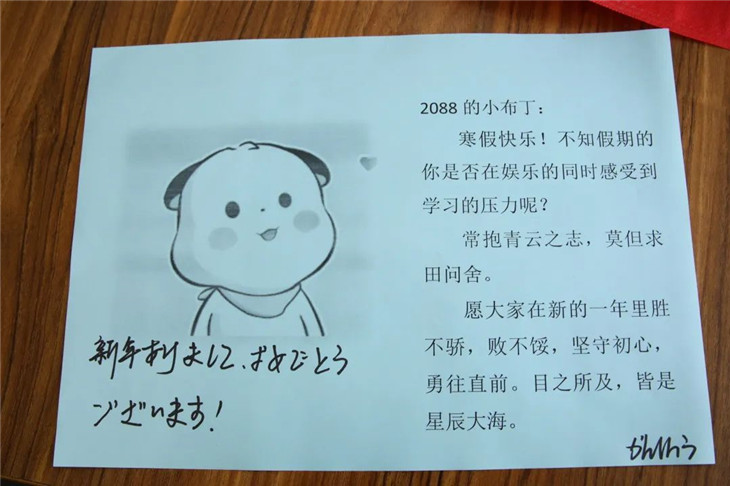 2088 的小布丁：
寒假快乐！不知假期的
你是否在娱乐的同时感受到
学习的压力呢？
常抱青云之志，莫但求
田问舍。
愿大家在新的一年里胜
不骄，败不馁，坚守初心，
勇往直前。目之所及，皆是
星辰大海。
新年あけまして、おめでとう
ございます！